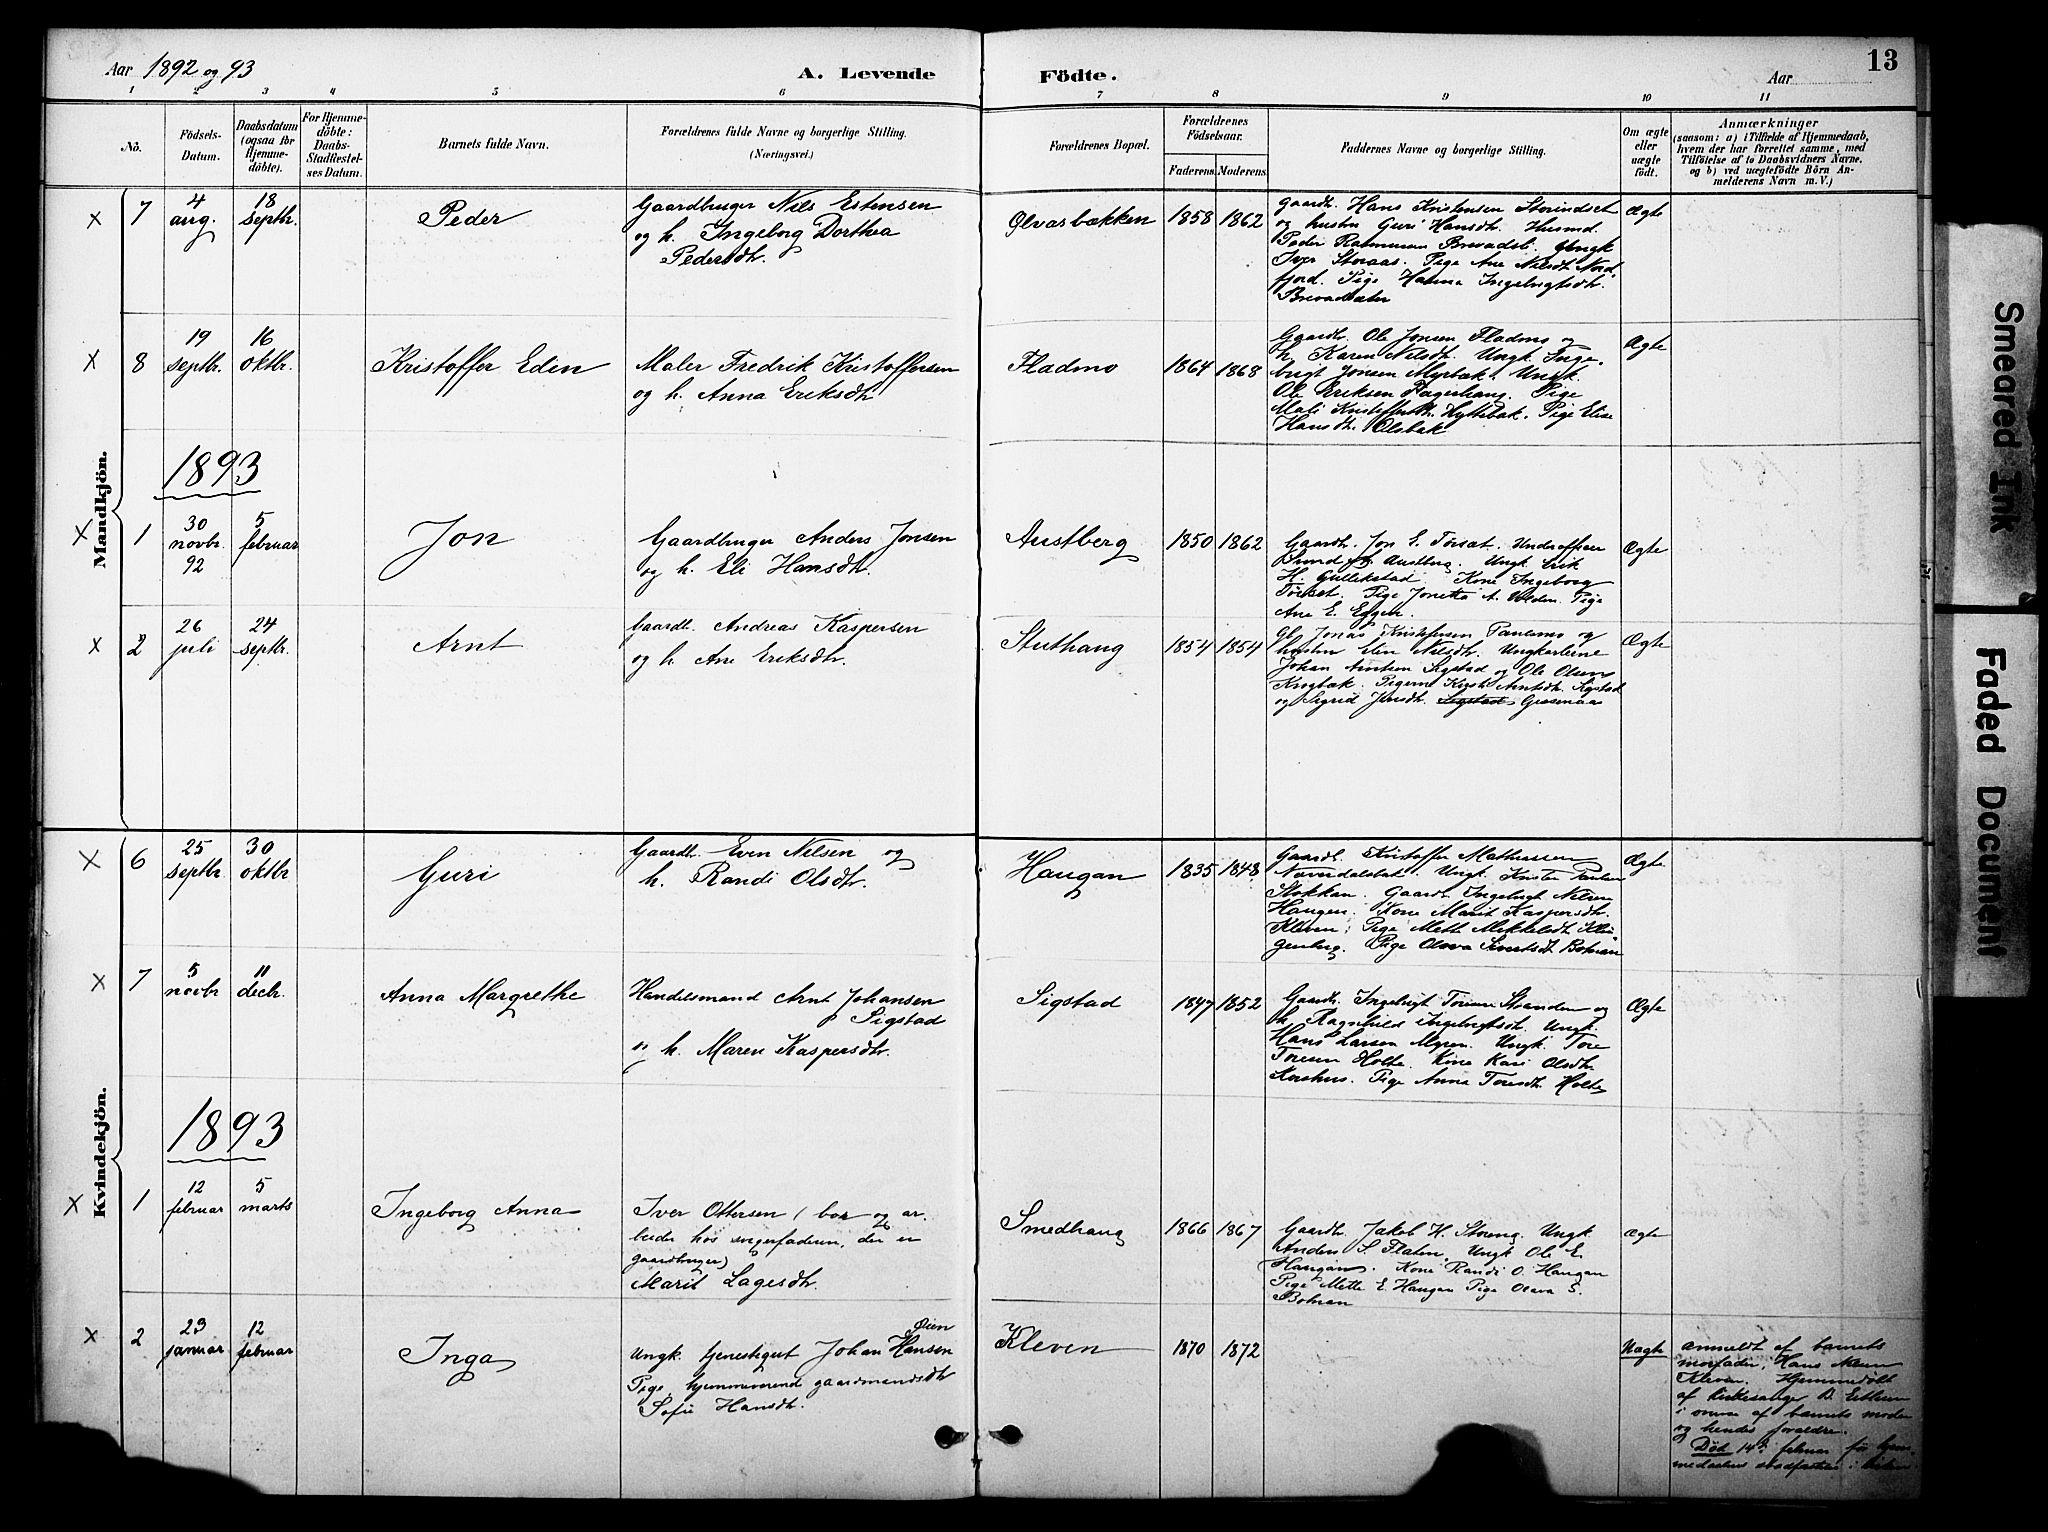 Aar 1892 og 93
A. Levende
Födte.
Aar
13
1 2 3 4 5 6 7 8 9 10 11
No.
Födsels-
Datum.
Daabsdatum
(ogsaa for
Hjemme-
döbte).
For Hjemme-
döbte:
Daabs-
Stadfæstel-
ses Datum.
Barnets fulde Navn.
Forældrenes fulde Navne og borgerlige Stilling.
(Næringsvei.)
Forældrenes Bopæl.
Forældrenes
Födselsaar.
Faderens.
Moderens.
Faddernes Navne og borgerlige Stilling.
Om ægte
eller
uægte
födt.
Anmærkninger
(saasom: a) i Tilfælde af Hjemmedaab,
hvem der har forrettet samme, med
Tilföielse af to Daabsvidners Navne,
og b) ved uægtefödte Börn An-
melderens Navn m. V.)
Mandkjön.
x 7
4
aug.
18
septbr.
Peder
Gaardbruger Nils Estensen
og h. Ingeborg Dorthea
Pedersdtr.
Olvasbækken
1858
1862
Gaardb. Hans Kristensen Storindset
og hustru Guri Hansdt. Husmd.
Peder Rasmussen Brevadsli. Ungk
Iver Storaas. Pige Ane Nilsdt Nord
fjord. Pige Hanna Ingebrigtsdtr.
Ægte
x 8
19
septbr.
16
oktbr.
Kristoffer Eden
Maler Fredrik Kristoffersen
og h. Anna Eriksdtr
Fladmo
1864
1868
Gaardb. Ole Jonsen Fladmo og
h. Karen Nilsdtr. Ungk. Inge-
brigt Jonsen Myrbæk. Ungk.
Ole Eriksen Hagerhaug. Pige
Mali Kristoffersdtr. Hyttebak. Pige Elise
Hansdtr. Olsbak
Ægte
1893
x 1
30
novbr.
92
5
februar
Jon
Gaardbruger Anders Jonsen
og h. Eli Hansdtr.
Austberg
1850
1862
Gaardb. Jon E. Torset. Underofficer
Austberg. Ungk. Erik
H. Gullikstad. Kone Ingeborg
Torset. Pige Jonetta A. Volden. Pige
Ane E. Eggen.
Ægte
x 2
26
juli
24
septbr.
Arnt
Gaardb. Andreas Kaspersen
og h. Ane Eriksdtr.
Stuthaug
1854
1854
Gb. Jonas Kristofersen Panesmo og
hustru Elen Nilsdtr. Ungkarlene
Johan Arntsen Sigstad og Ole Olsen
Krogbæk. Pigerne Kirsti Arntsdtr. Sigstad
og Sigrid Jensdtr. Sigstad Græsmaas
Ægte
Kvindekjön.
x 6
25
septbr.
30
oktbr
Guri
Gaardb. Even Nilsen og
h. Randi Olsdtr.
Haugan
1835
1848
Gaardb. Kristoffer Mathiassen
Næverdalslet. Ungk. Krister Paulsen
Stokkan. Gaardb. Ingebrigt Nilsen
Haugen. Kone Marit Kaspersdtr.
Kleven, Pige Mette Mikkelsdt Klin
genberg. Pige Olava Sivertsdt Botnan
Ægte
x 7
5
novbr
11
decbr.
Anna Margrethe
Handelsmand Arnt Johansen
Sigstad
og h. Maren Kaspersdtr.
Sigstad
1847
1852
Gaardb. Ingebrigt Toresen Stranden og
h. Ragnhild Ingebrigtsdt. Ungk.
Hans Larsen Myren. Ungk Tore
Toresen Holte. Kone Kari Olsdtr.
Korshus. Pige Anna Toresdt. Holte
Ægte
1893
x 1
12
februar
5
marts
Ingeborg Anna
Iver Ottersen (bor og ar-
beider hos svigerfaderen, der er
gaardbruger)
Marit Lagesdtr.
Smedhaug
1866
1867
Gaardb. Jakob H. Storeng. Ungk.
Anders S Flaten, Ungk Ole E.
Haugan. Kone Randi O. Haugan
Pige Mette E. Haugan Pige Olava S.
Botnan
Ægte
x 2
23
januar
12
februar
Inga
Øien
Ungk. tjenestegut Johan Hansen
Pige, hjemmeværende gaardmandsdtr
Sofie Hansdtr.
Kleven
1870
1872
Uægte
Anmeldt af barnets
morfader, Hans Nilsen
Kleven. Hjemmedöbt
af kirkesanger
i overvær af barnets moder
og hendes forældre.
Död 14de februar før hjem-
medaabens stadfæstelse i kirken
Smeared Ink
Faded Document